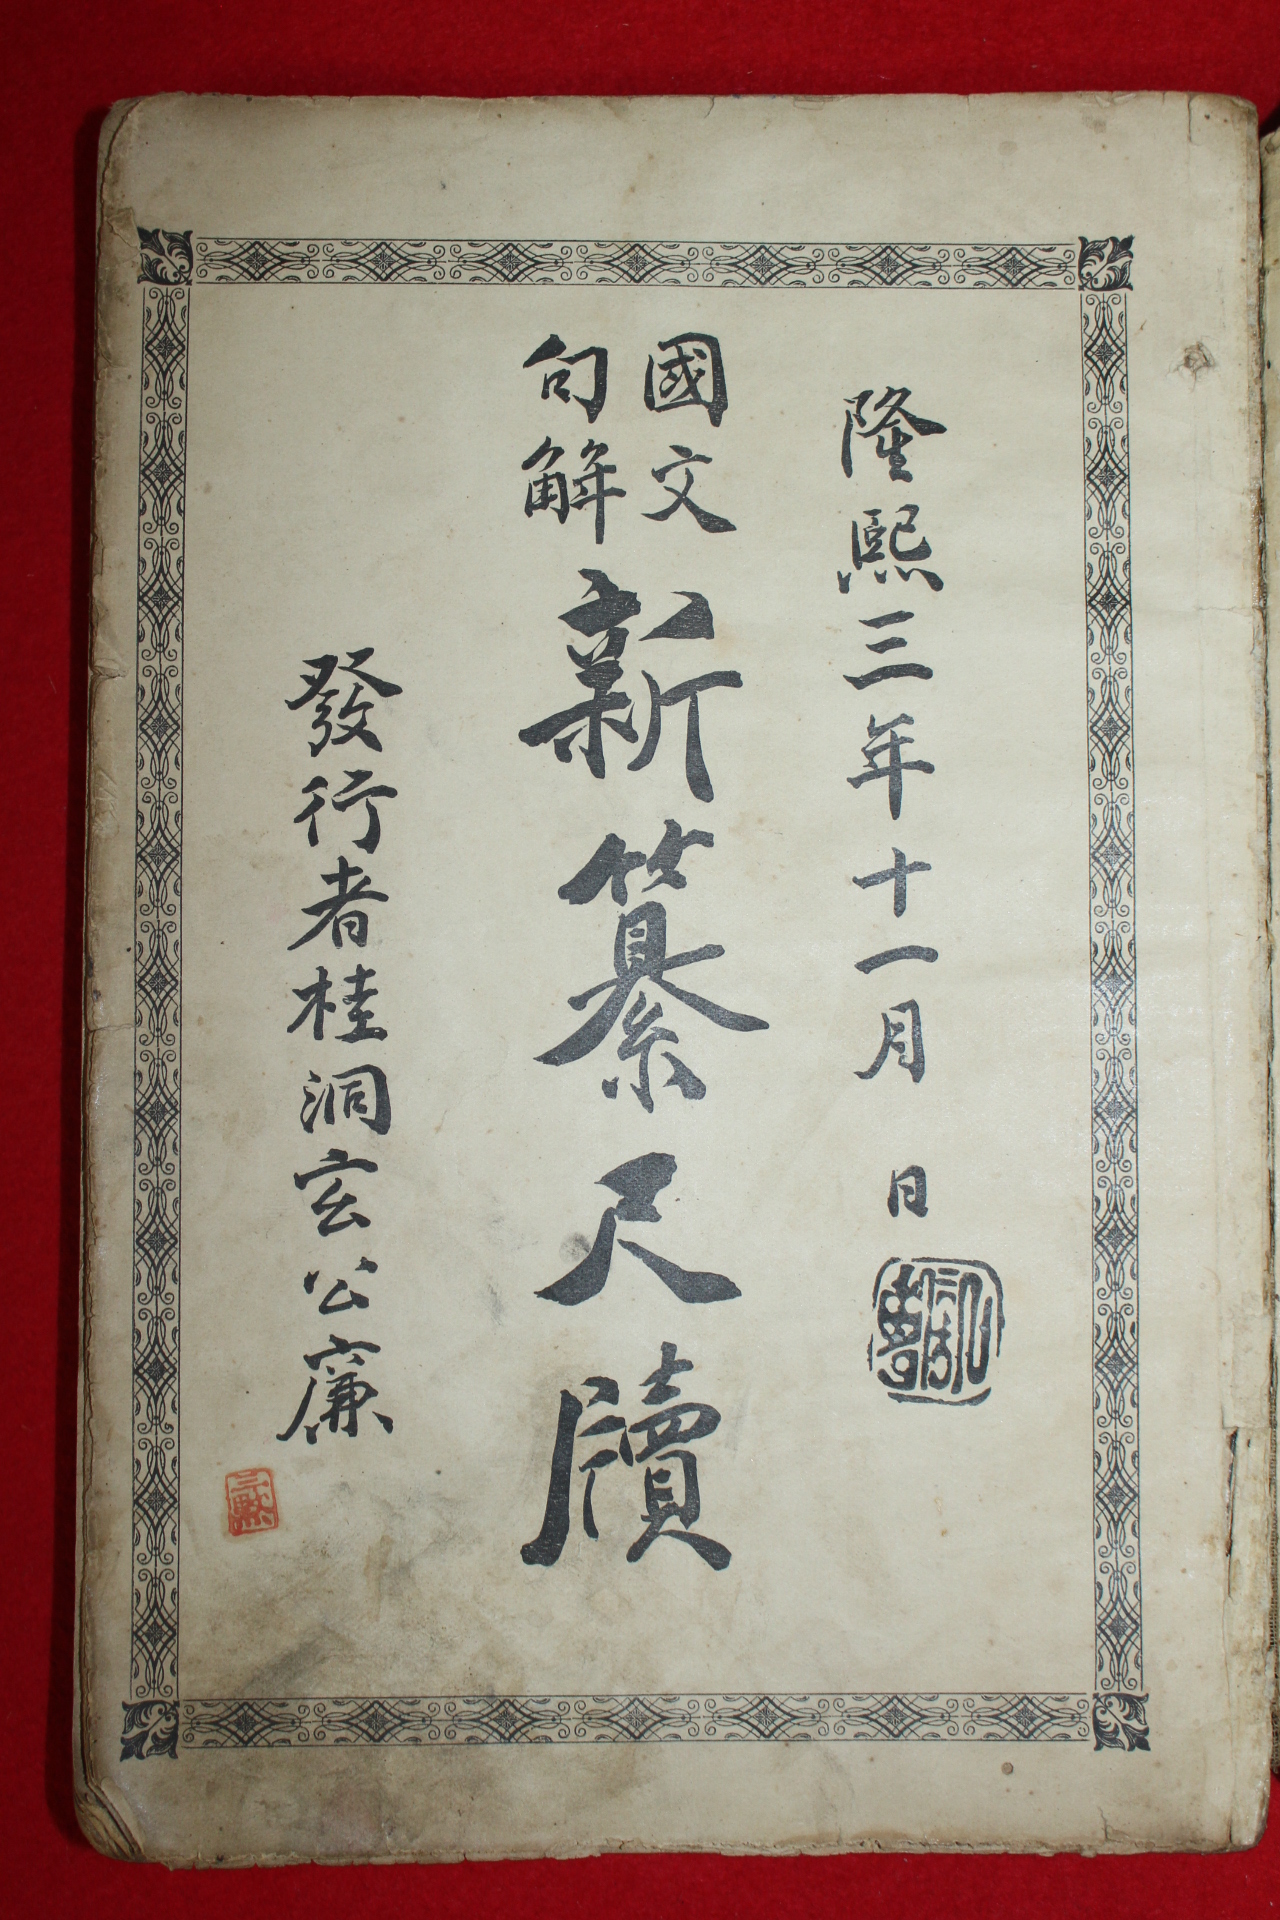 隆熙三年十一月 日
國文
句解
新纂尺牘
發行者桂洞玄公廉